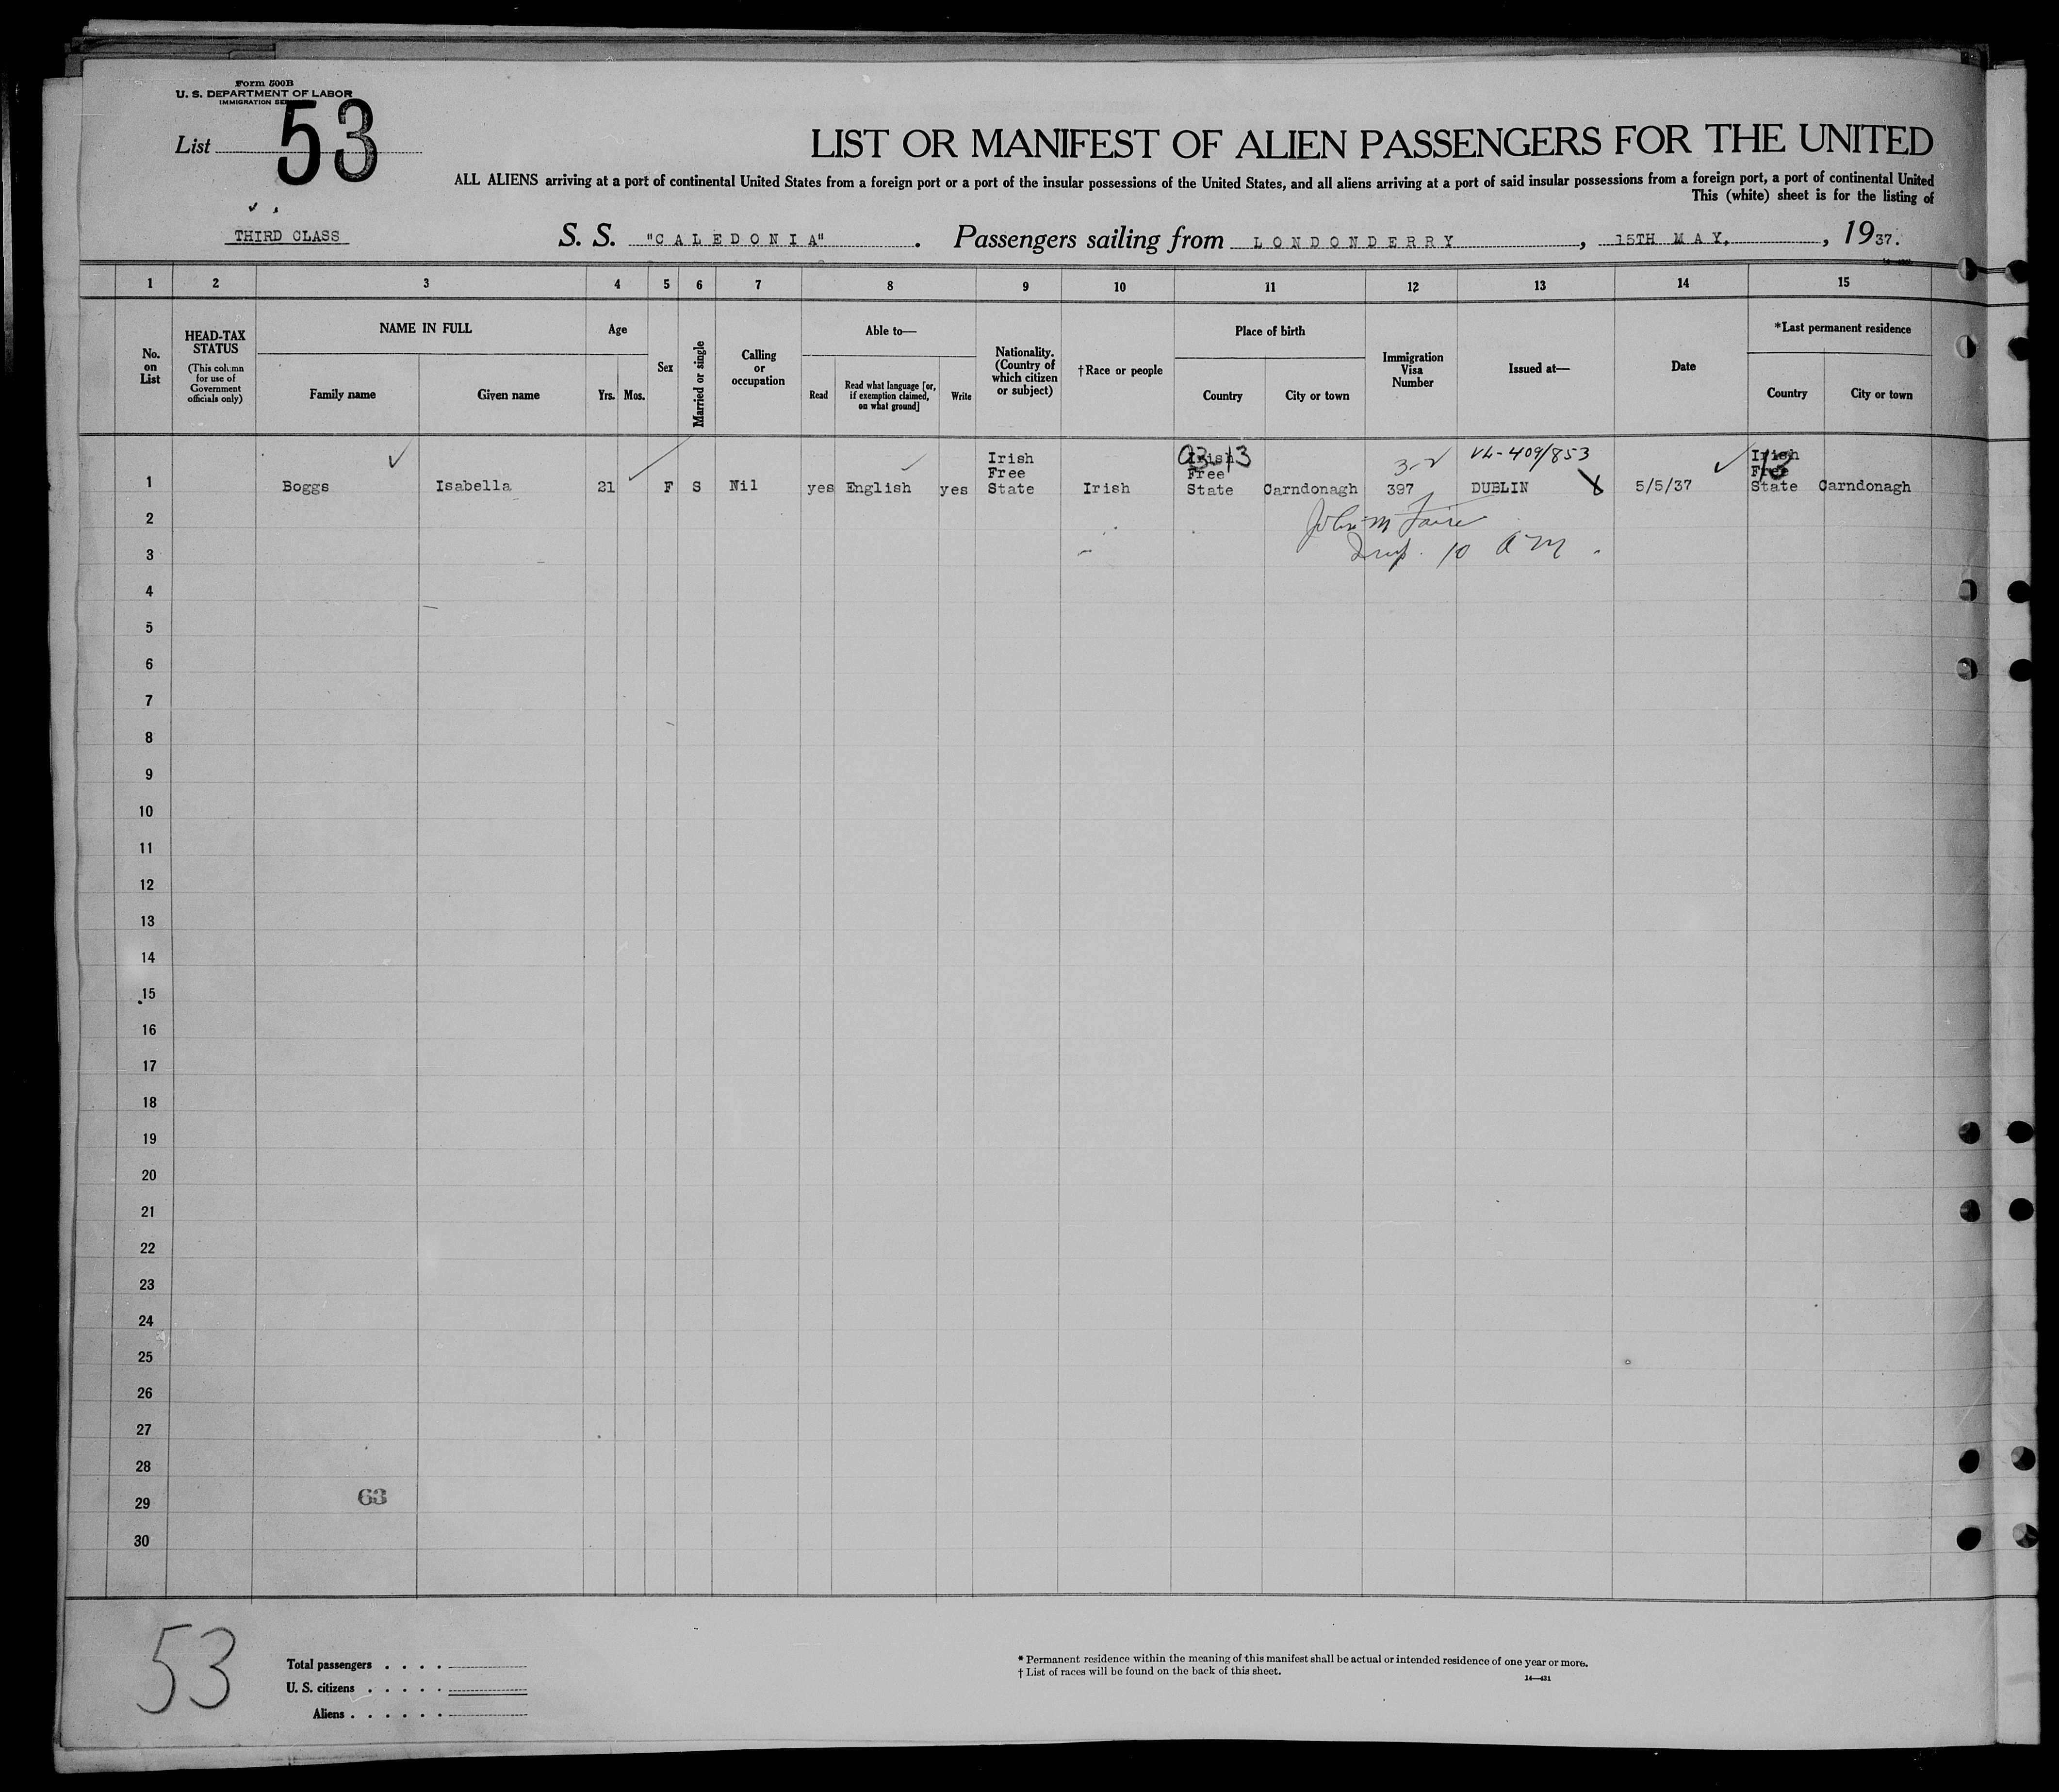 Form 500B
U. S. DEPARTMENT OF LABOR
IMMIGRATION
List 53
LIST OR MANIFEST OF ALIEN PASSENGERS FOR THE UNITED
ALL ALIENS arriving at a port of continental United States from a foreign port or a port of the insular possessions of the United States, and all aliens arriving at a port of said insular possessions from a foreign port, a port of continental United
This (white) sheet is for the listing of
THIRD CLASS
S. S. "CALEDONIA". Passengers sailing from LONDONDERRY, 15TH MAY, 1937.
1 2 3 4 5 6 7 8 9 10 11 12 13 14 15
No. on List
HEAD-TAX STATUS
(This column for use of Government officials only)
NAME IN FULL
Family name
Given name
Age
Yrs.
Mos.
Sex
Married or single
Calling or occupation
Able to—
Read
Read what language [or, if exemption claimed, on what ground]
Write
Nationality. (Country of which citizen or subject)
†Race or people
Place of birth
Country
City or town
Immigration Visa Number
Issued at—
Date
*Last permanent residence
Country
City or town
1 Boggs Isabella 21 F S Nil yes English yes Irish Free State Irish Irish Free State Carndonagh 397 DUBLIN 5/5/37 Irish Free State Carndonagh
2
3
10 AM
4
5
6
7
8
9
10
11
12
13
14
15
16
17
18
19
20
21
22
23
24
25
26
27
28
63
29
30
53
Total passengers . . . .
U. S. citizens . . . . .
Aliens . . . . . .
* Permanent residence within the meaning of this manifest shall be actual or intended residence of one year or more.
† List of races will be found on the back of this sheet.
14—431